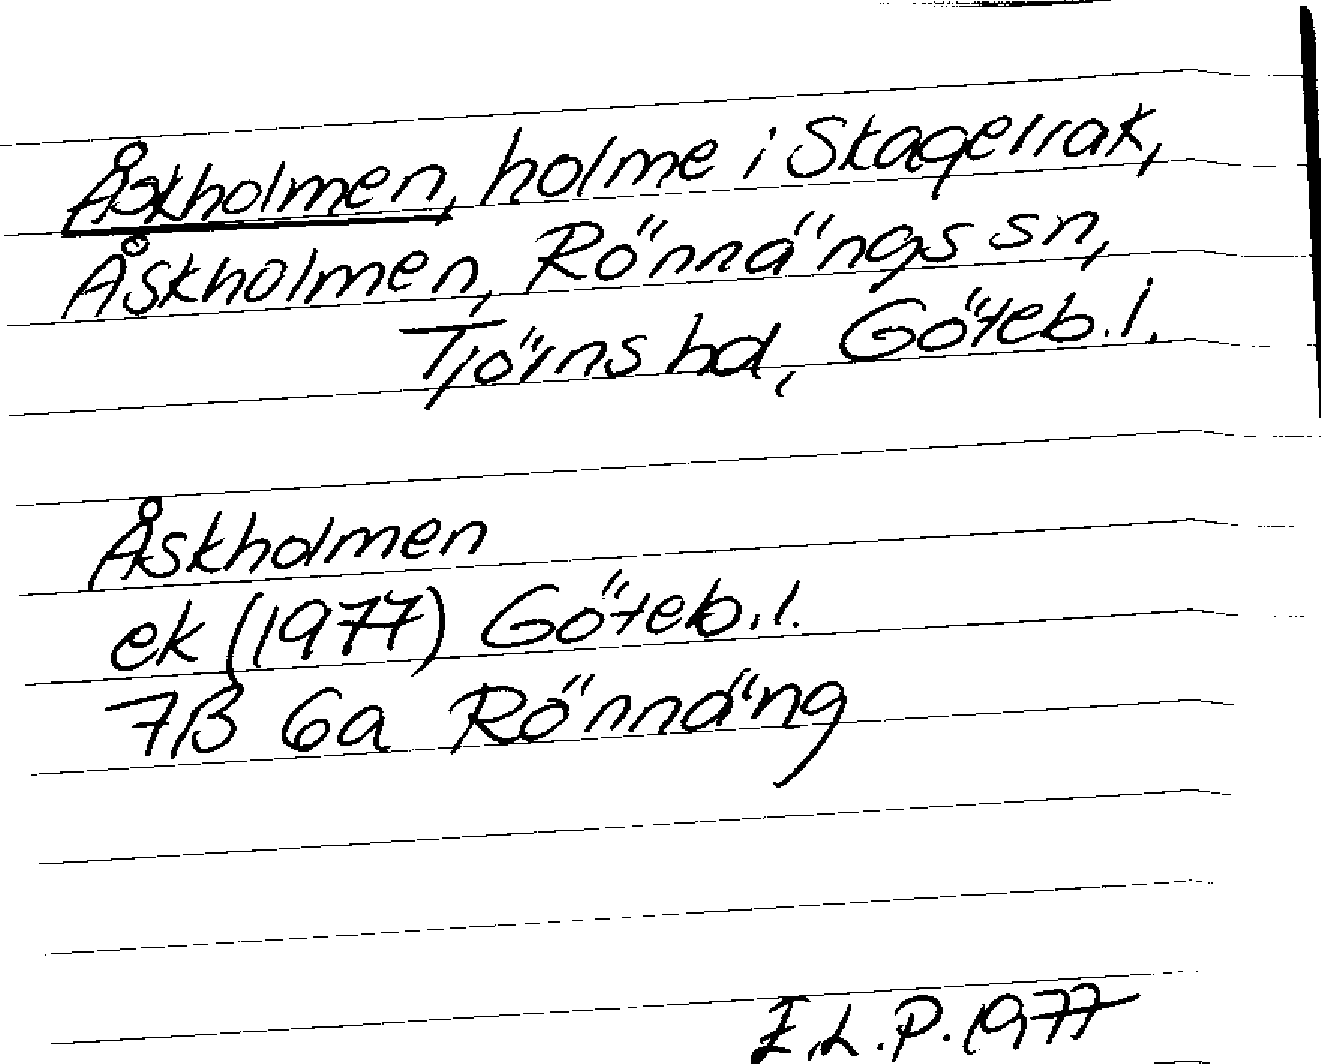 Åskholmen, holme i Skagerrak,
Åskholmen, Rönnängs sn,
Tjörns hd, Göteb. l.
Åskholmen
ek (1977) Göteb. l.
7B 6a Rönnäng
E.L.P. 1977